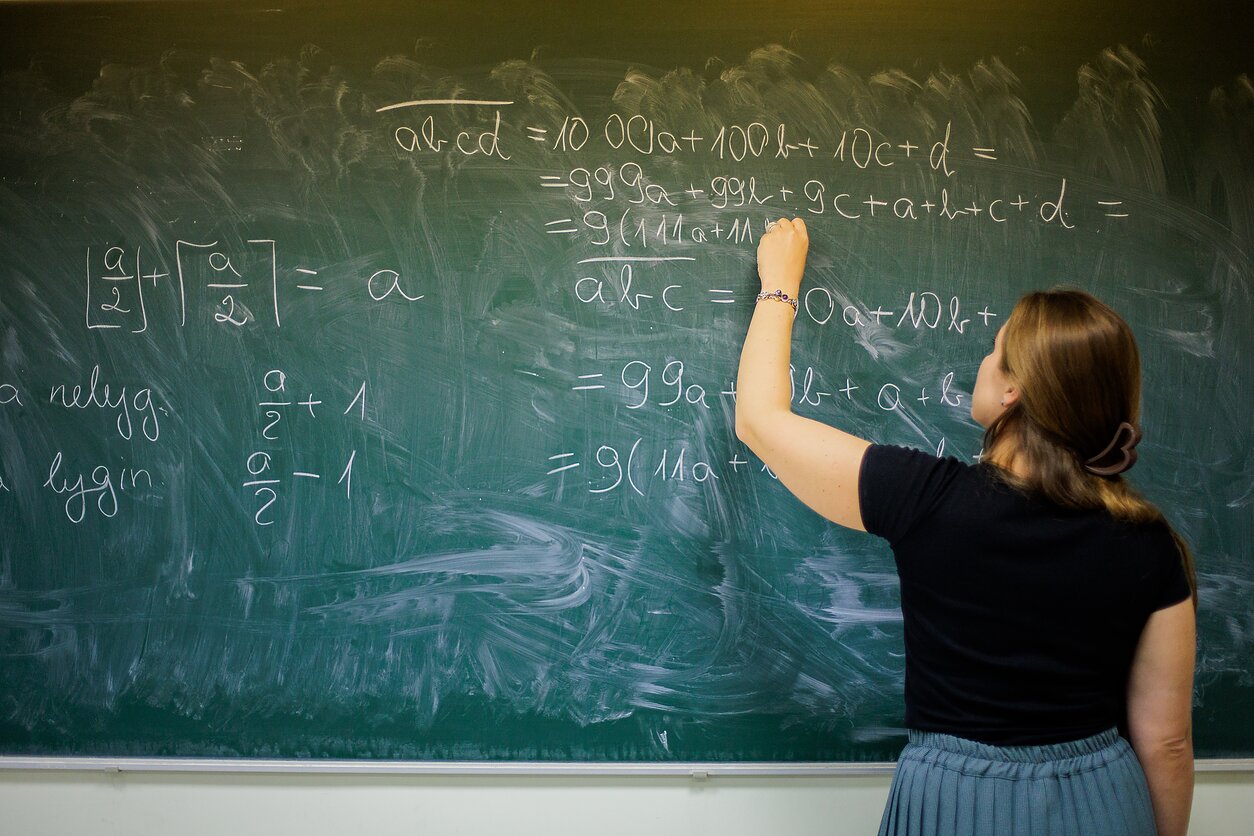 $\overline{abcd} = 1000a + 100b + 10c + d =$
$= 999a + 99b + 9c + a + b + c + d =$
$= 9(111a + 11$
$\lfloor \frac{a}{2} \rfloor + \lceil \frac{a}{2} \rceil = a$
$\overline{abc} = 0a + 10b +$
a nelyg. $\frac{a}{2} + 1$
$= 99a + 9b + a + b$
lygin. $\frac{a}{2} - 1$
$= 9(11a +$